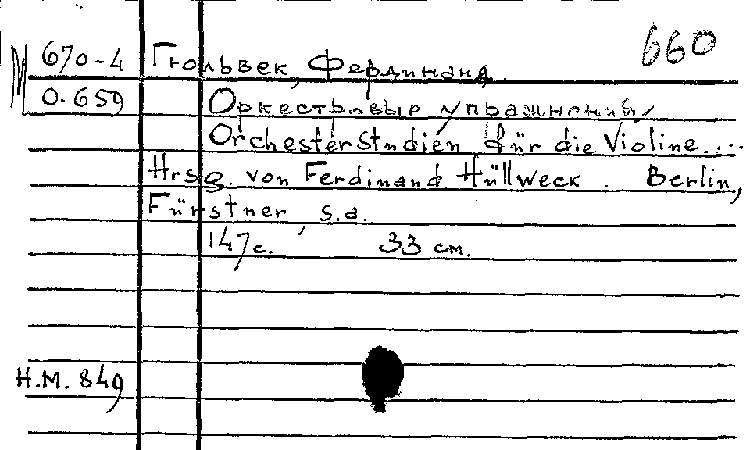 660
M 670-4 Гюльвек, Фердинанд
О-659 Оркестровые упражнения/
Orchesterstudien für die Violine....
Hrsg. von Ferdinand Hüllweck. Berlin,
Fürstner, s.a.
147 с. 33 см.
Н.М. 849